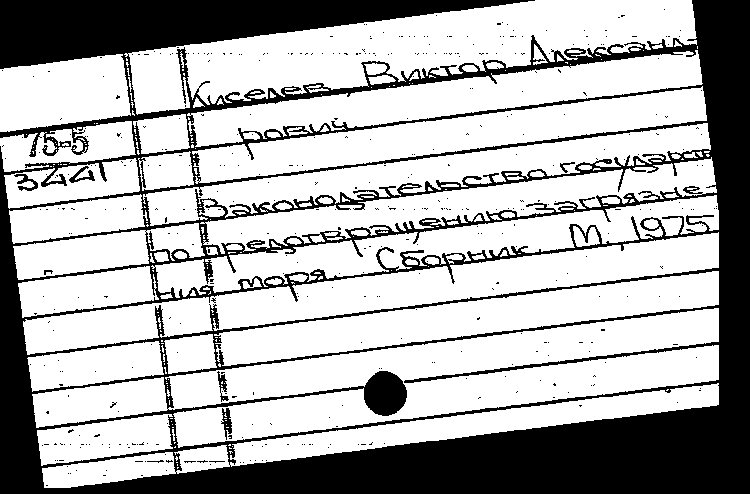 Киселев, Виктор Александ-
рович
75-5
3441
Законодательство государств
по предотвращению загрязне-
ния моря. Сборник. М., 1975